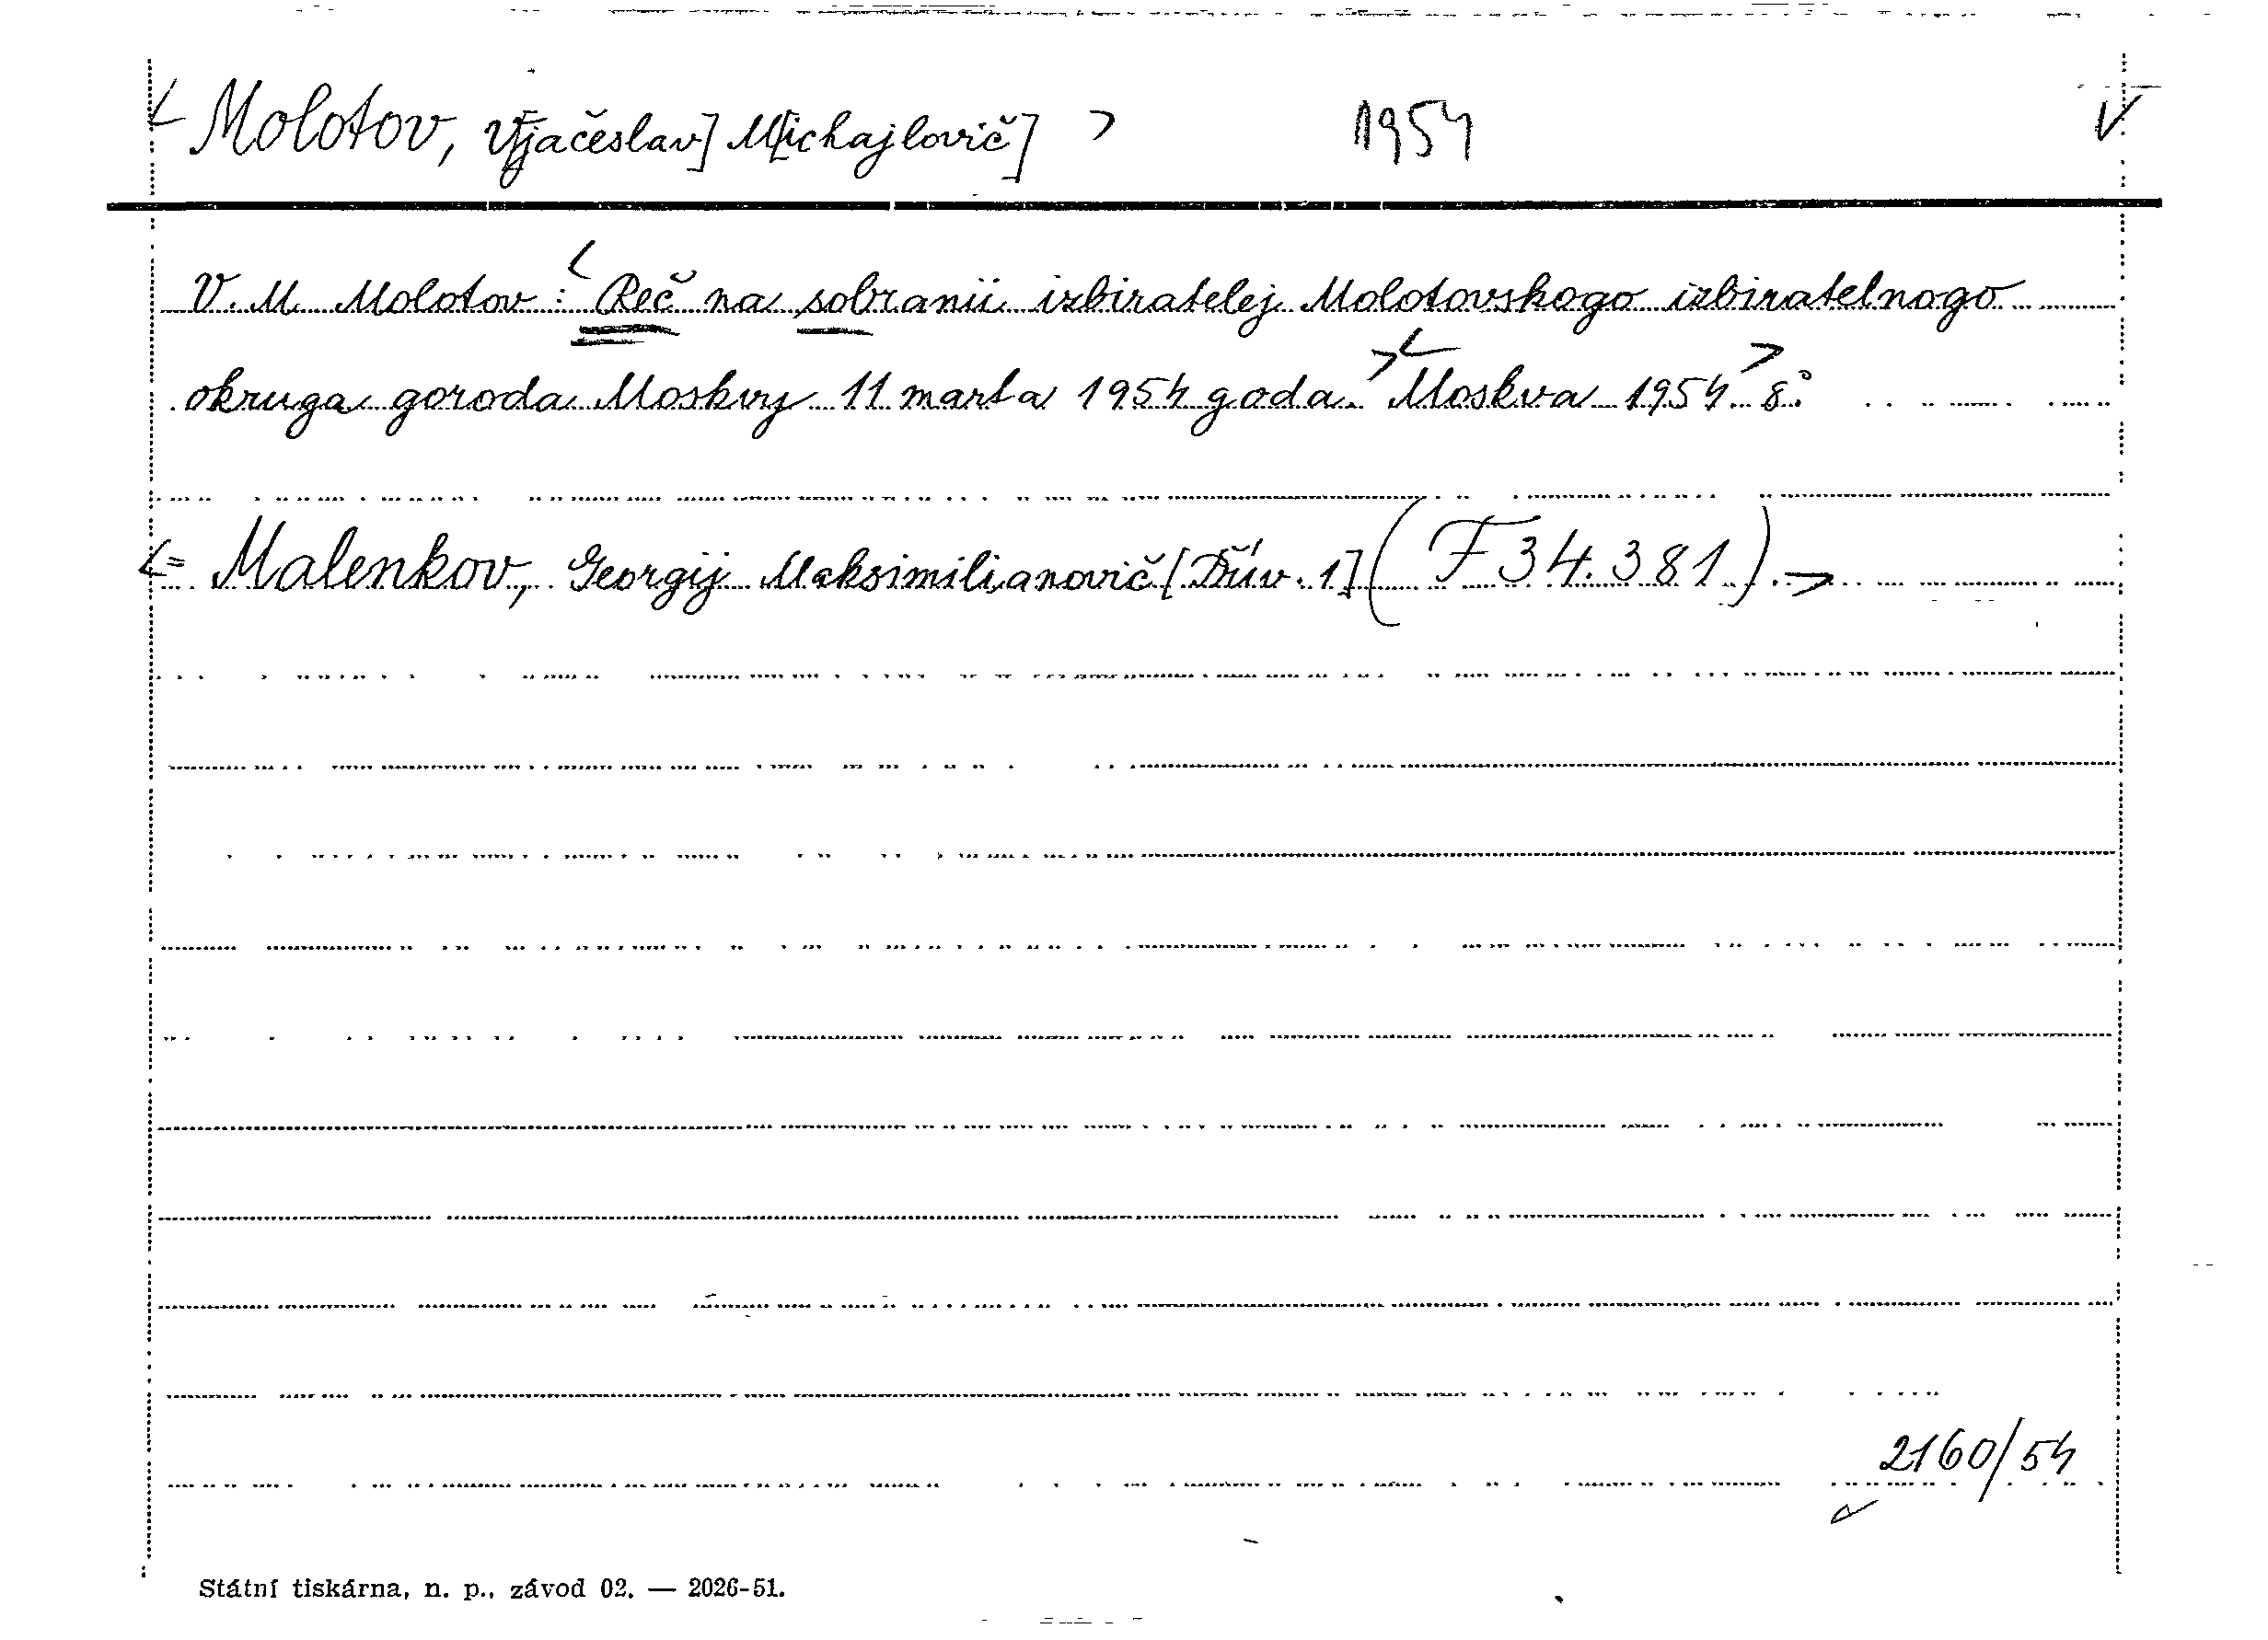 < Molotov, V[jačeslav] M[ichajlovič] > 1954 V
V. M. Molotov: < Reč na sobranii izbiratelej Molotovskogo izbiratelnogo
okruga goroda Moskvy 11 marta 1954 goda. > < Moskva 1954 > 8°.
<= Malenkov, Georgij Maksimilianovič [Dův. 1] (F 34.381) >
2160/54
Státní tiskárna, n. p., závod 02. — 2026-51.